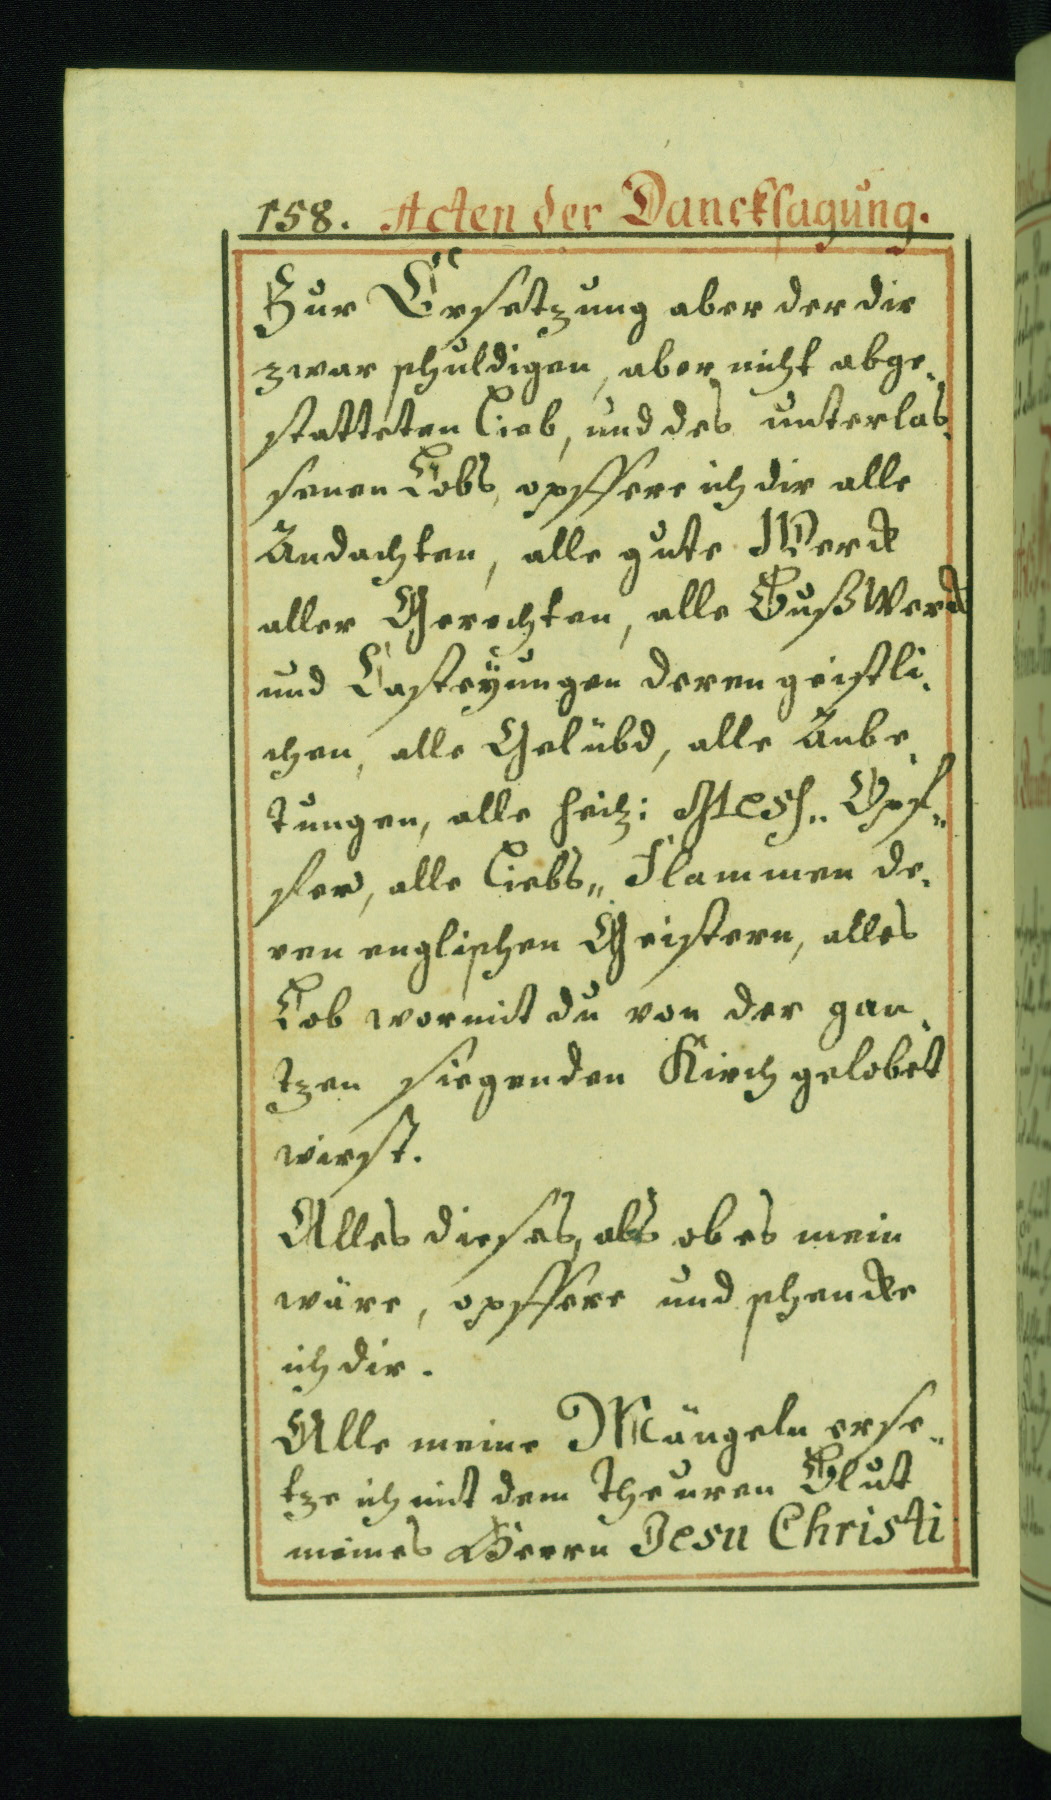 158. Acten der Dancksagung.
Zur Ersetzung aber der dir
zwar schuldigen, aber nicht abge-
statteten Lieb, und des unterlas-
senen Lobs, opffere ich dir alle
Andachten, alle gute Werck
aller Gerechten, alle Bußwerck
und Casteÿungen deren geistli-
chen, alle Gelübd, alle Anbe-
tungen, alle heil: Meß-Opf-
fer, alle Liebs-Flammen de-
ren englischen Geistern, alles
Lob wormit du von der gan-
tzen siegenden Kirch gelobet
wirst.
Alles dieses, als ob es mein
wäre, opffere und schencke
ich dir.
Alle meine Mängeln erse-
tze ich mit dem theuren Blut
meines Herrn Jesu Christi